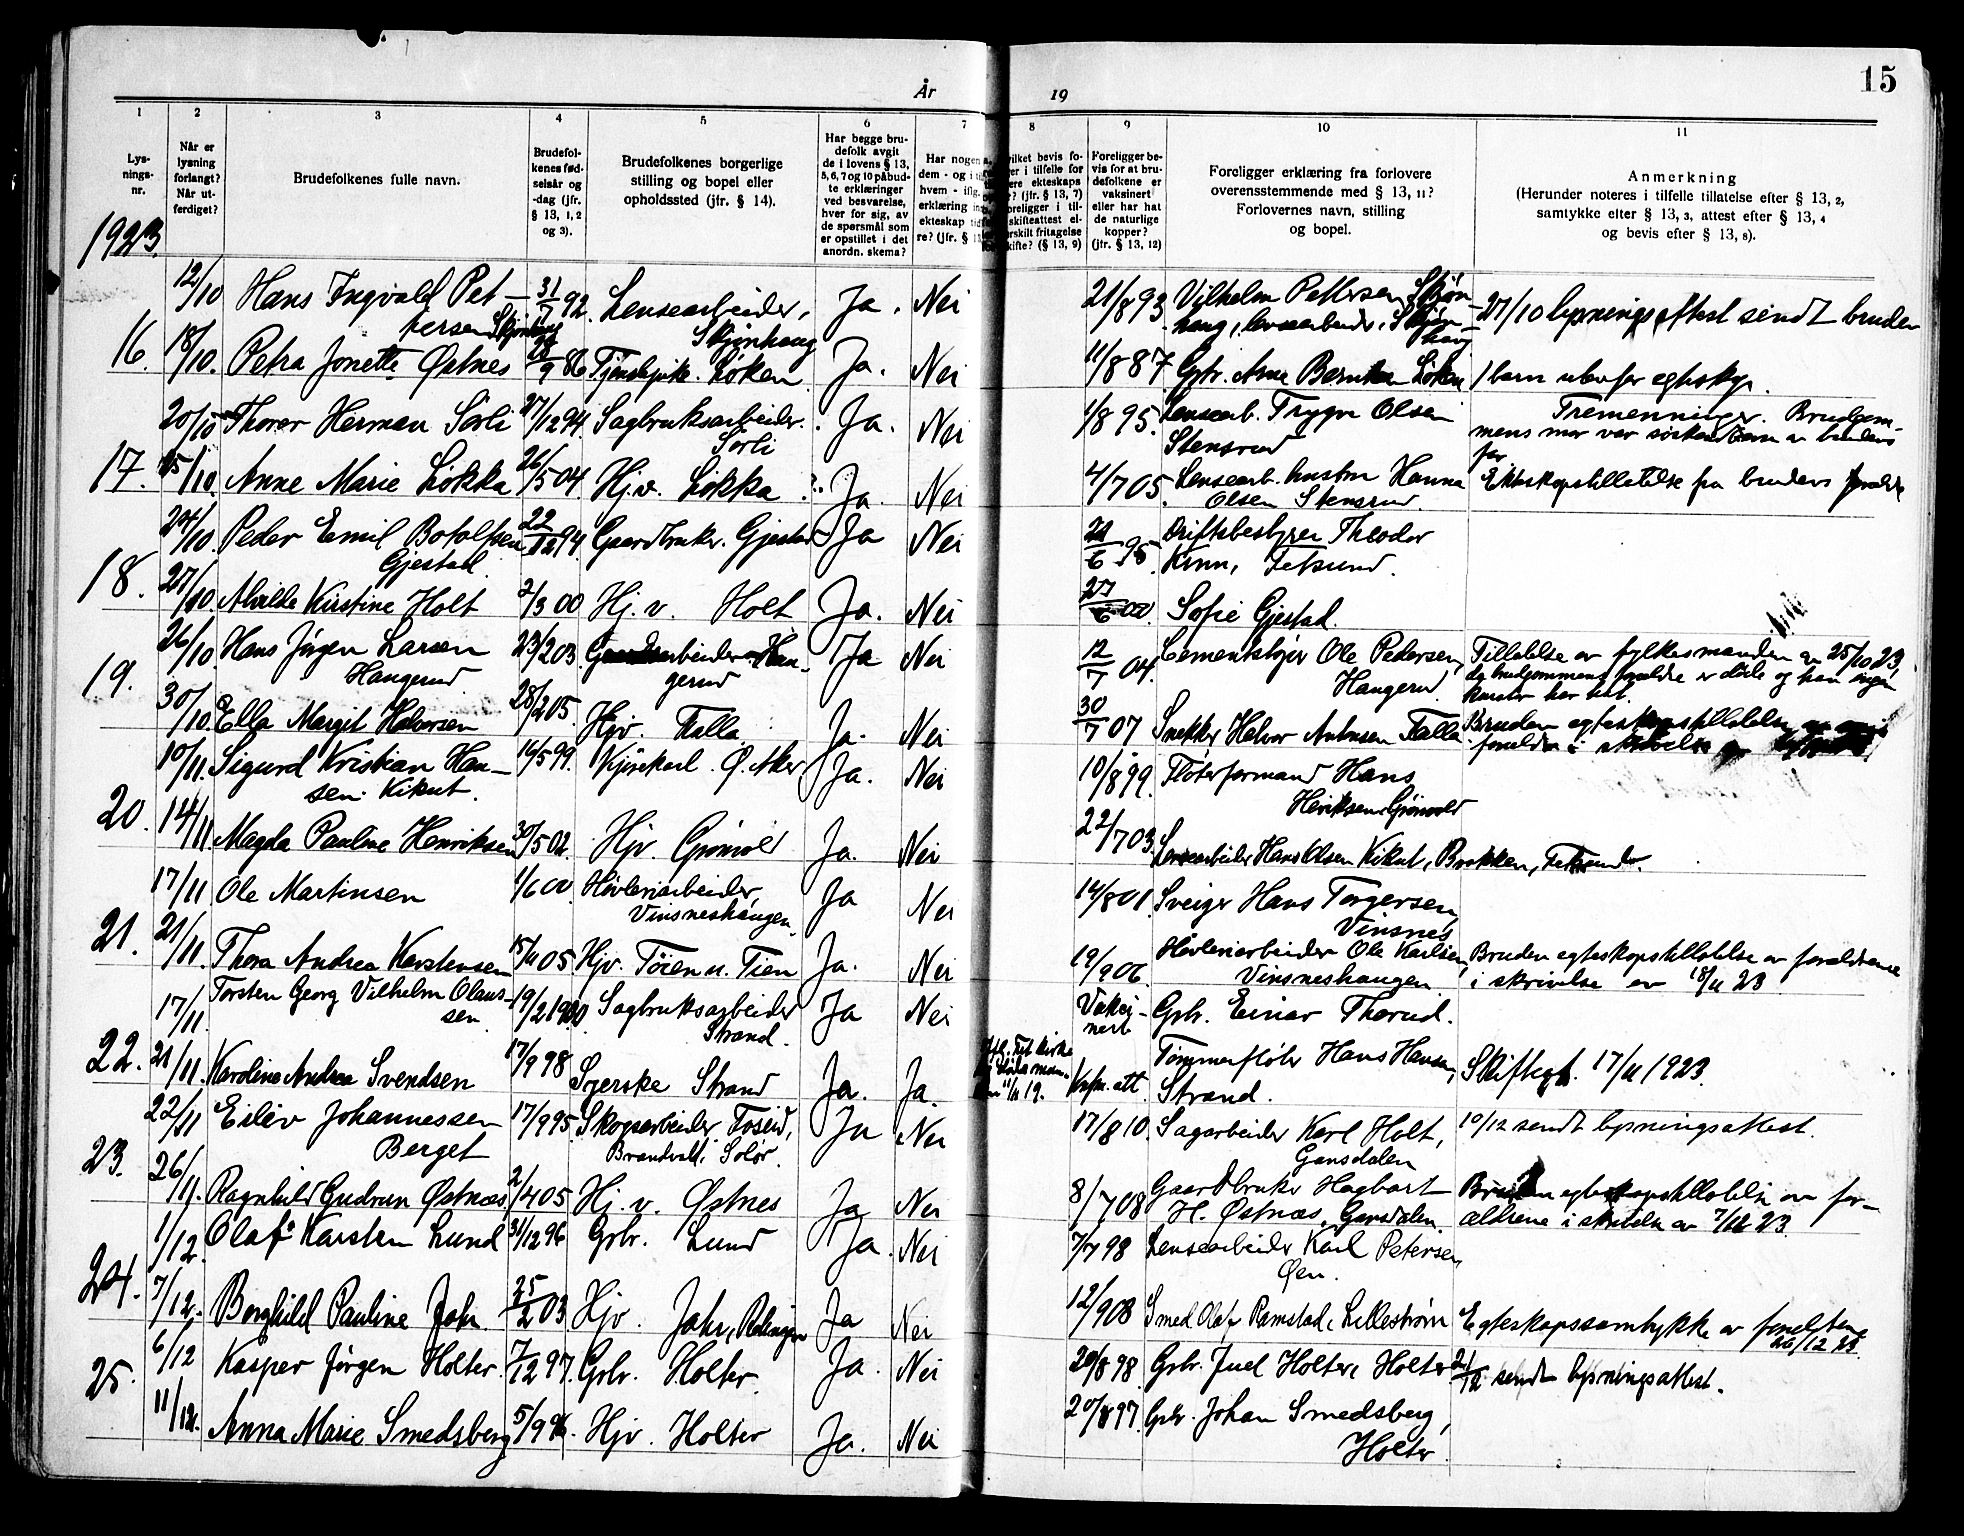 15
År 19
1 2 3 4 5 6 7 8 9 10 11
Lys-
nings-
nr.
Når er
lysning
forlangt?
Når ut-
ferdiget?
Brudefolkenes fulle navn.
Brudefol-
kenes fød-
selsår og
-dag (jfr.
§ 13, 1, 2
og 3).
Brudefolkenes borgerlige
stilling og bopel eller
opholdssted (jfr. § 14).
Har begge bru-
defolk avgit
de i lovens § 13,
5, 6, 7 og 10 påbud-
te erklæringer
ved besvarelse,
hver for sig, av
de spørsmål som
er opstillet i det
anordn. skema?
Har nogen a
dem - og i
hvem - ifig.
erklæring in
ekteskap tid
re? (jfr. §
vilket bevis fo-
er i tilfelle for
ere ekteskaps
? (jfr. § 13, 7)
oreligger i til-
skifteattest el-
erskilt fritagelse
skifte? (§ 13, 9)
Foreligger be-
vis for at bru-
defolkene er
vaksinert
eller har hat
de naturlige
kopper?
(jfr. § 13, 12)
Foreligger erklæring fra forlovere
overensstemmende med § 13, 11?
Forlovernes navn, stilling
og bopel.
Anmerkning
(Herunder noteres i tilfelle tillatelse efter § 13, 2,
samtykke efter § 13, 3, attest efter § 13, 4
og bevis efter § 13, 8).
1923.
12/10 Hans Ingvald Pet- 31/7 92. Lensearbeider, Ja. Nei 21/8 93 Vilhelm Pettersen Skjøn- 27/10 lysningsattest sendt bruden
tersen Skjønhaug Skjønhaug haug, lensearbeider, Skjøn-
haug
16. 18/10. Petra Jonette Østnes /9 86 Tjenestpike. Løken. Ja. Nei 11/8 87 Gbr. Arne Berntsen Løken 1 barn utenfor egteskap.
20/10 Thorer Herman Sörli 27/12 94. Sagbruksarbeider. Ja. Nei 1/8 95. Lensearb. Trygve Olsen Tremenninger. Brudgom-
Sörli Stensrud mens mor var søskendbarn av brudens
far.
17. 25/10. Anne Marie Løkka 26/5 04 Hj.v. Løkka Ja. Nei 4/7 05. Lensearb. hustru Hanna Ekteskapstillatelse fra brudens forældre
Olsen Stensrud.
24/10 Peder Emil Botolfsen 22/12 94 Gaardbruker. Gjestad Ja Nei 22/6 95 Driftsbestyrer Theodor
Gjestad Kinn, Fetsund.
18. 27/10. Alvilde Kirstine Holt 2/3 00 Hj. v. Holt Ja. Nei 27/6 00 Sofie Gjestad.
26/10 Hans Jørgen Larsen 23/2 03 arbeider Han- Ja Nei 12/7 04. Cementstøper Ole Pedersen, Tillatelse av fylkesmanden av 25/10 23,
Hangerud gerud Hangerud da brudgommens forældre er døde og han ingen
kurator har hat.
19. 30/10. Ella Margit Halvorsen 28/2 05. Hjv. Falla. Ja. Nei 30/7 07 Snekker Halvor Antonsen Falla Bruden egteskapstillatelse
forældre i skrivelse
10/11. Sigurd Kristian Han- 16/5 99. Kjørekarl. Ø. Aker Ja. Nei 10/8 99. Fløterformand Hans
sen Kikut. Henriksen Grönvold
20. 14/11 Magda Pauline Henriksen 30/5 02. Hjv. Grönvold Ja. Nei 22/7 03. Lensearbeider Hans Olsen Kikut, Brakken, Fetsund.
17/11 Ole Martinsen 1/6 00 Høvleriarbeider, Ja Nei 14/8 01. Sveiser Hans Torgersen,
Vinsneshaugen. Vinsnes
21. 21/11. Thora Andrea Karstensen 15/11 05 Hjv. Töien u. Tien Ja. Nei 19/9 06 Høvleriarbeider Ole Karlsen, Bruden egteskapstillatelse av forældrene
Vinsneshaugen i skrivelse av 18/11 23
17/11. Torsten Georg Vilhelm Olaus- 19/2 1900 Sagbruksarbeider Ja Nei Vaksi- Gbr. Einar Thorud.
sen Strand. nert
22. 21/11. Karoline Andrea Svendsen 17/9 98 Syerske Strand Ja. Ja. Fet kirke Konf. att. Tømmerfløter Hans Hansen, Skifteat. 17/11 1923.
11/11 19. Strand.
22/11 Eilev Johannessen 17/9 95. Skogsarbeider Foseid, Ja Nei 17/8 10. Sagarbeider Karl Holt, 10/12 sendt lysningsattest.
Berget Brandval i Solør. Gansdalen
23. 26/11. Ragnhild Gudrun Østnæs 2/4 05 Hj. v. Østnes Ja Nei 8/7 08 Gaardbruker Hagbart Bruden egteskapstillatelse av for-
H. Østnæs, Gansdalen ældrene i skrivelse av 7/12 23
1/12. Olaf Karsten Lund 31/12 96 Gbr. Lund Ja. Nei 7/7 98 Lensearbeider Karl Petersen,
Øen.
24. 7/12. Borghild Pauline Jahr. 25/2 03 Hjv. Jahr, Rælingen Ja Nei 12/9 08 Smed Olaf Ramstad, Lillestrøm Egteskapssamtykke av forældrene
20/12 23.
6/12 Kasper Jørgen Holter. 7/12 97. Gbr. Holter. Ja. Nei 20/8 98 Gbr. Juel Holter, Holter 21/12 sendt lysningsattest.
25. 11/12. Anna Marie Smedsberg 5/9 96. Hjv. Holter Ja. Nei 20/8 97. Gbr. Johan Smedsberg,
Holter.